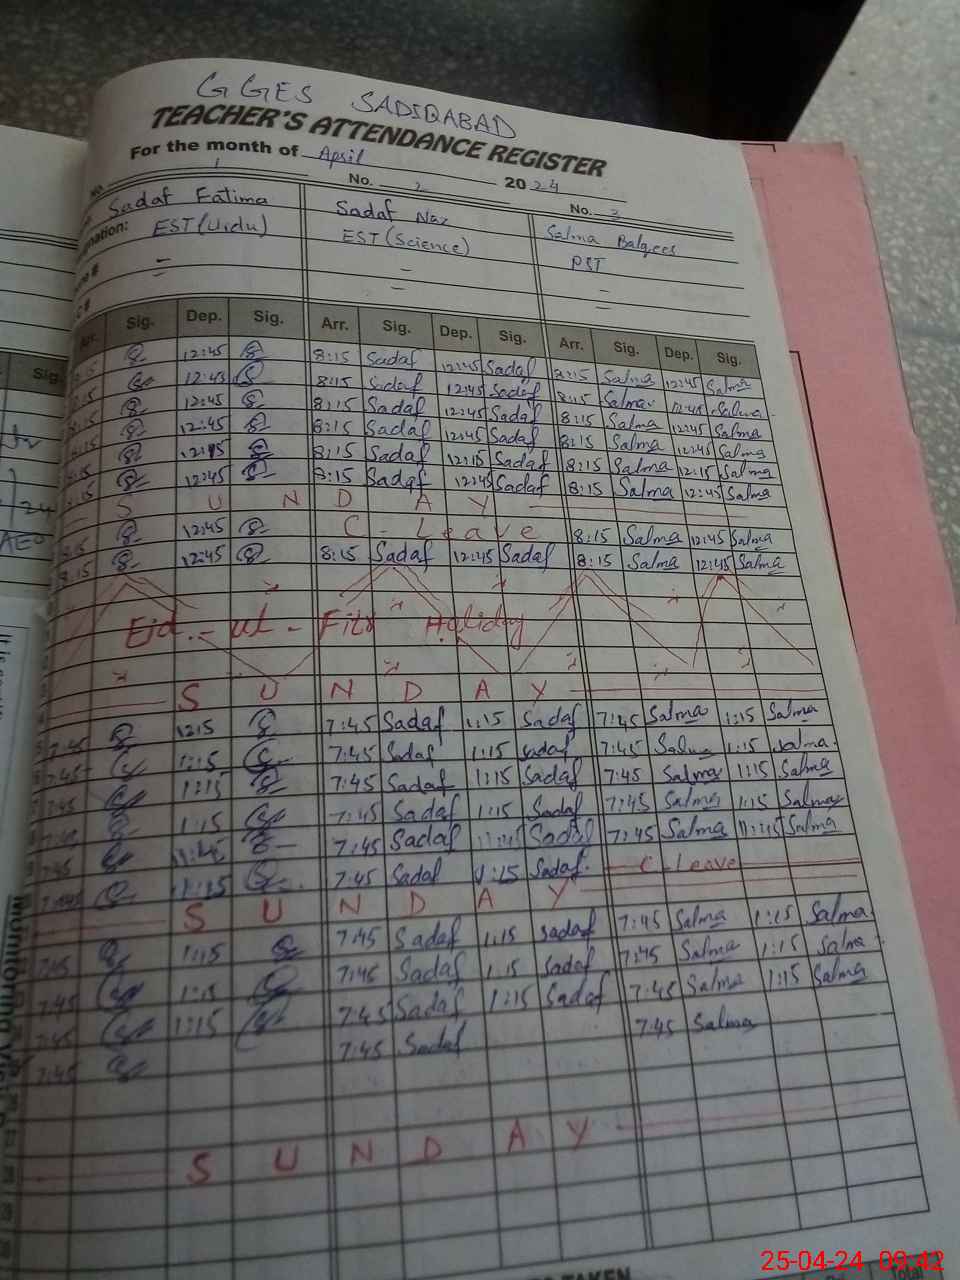 GGES SADIQABAD
TEACHER'S ATTENDANCE REGISTER
For the month of April 2024
No. 1 No. 2 No. 3
Sadaf Fatima Sadaf Naz Salma Balqees
EST (Urdu) EST (Science) PST
Sig. Dep. Sig. Arr. Sig. Dep. Sig. Arr. Sig. Dep. Sig.
12:45 8:15 Sadaf 12:45 Sadaf 8:15 Salma 12:45 Salma
12:45 8:15 Sadaf 12:45 Sadaf 8:15 Salma 12:45 Salma
12:45 8:15 Sadaf 12:45 Sadaf 8:15 Salma 12:45 Salma
12:45 8:15 Sadaf 12:45 Sadaf 8:15 Salma 12:45 Salma
8:15 Sadaf 12:15 Sadaf 8:15 Salma 12:15 Salma
12:45 8:15 Sadaf 12:45 Sadaf 8:15 Salma 12:45 Salma
S U N D A Y
8:15 12:45 C - Leave 8:15 Salma 12:45 Salma
8:15 12:45 8:15 Sadaf 12:45 Sadaf 8:15 Salma 12:45 Salma
Eid - ul - Fitr Holiday
S U N D A Y
7:45 12:15 7:45 Sadaf 1:15 Sadaf 7:45 Salma 1:15 Salma
7:45 1:15 7:45 Sadaf 1:15 Sadaf 7:45 Salma 1:15 Salma
7:45 1:15 7:45 Sadaf 1:15 Sadaf 7:45 Salma 1:15 Salma
1:15 7:45 Sadaf 1:15 Sadaf 7:45 Salma 1:15 Salma
7:45 11:45 7:45 Sadaf 11:45 Sadaf 7:45 Salma 11:45 Salma
7:45 1:15 7:45 Sadaf 1:15 Sadaf C-Leave
S U N D A Y
7:45 1:15 7:45 Sadaf 1:15 Sadaf 7:45 Salma 1:15 Salma
7:45 1:15 7:45 Sadaf 1:15 Sadaf 7:45 Salma 1:15 Salma
7:45 1:15 7:45 Sadaf 1:15 Sadaf 7:45 Salma 1:15 Salma
7:45 7:45 Sadaf 7:45 Salma
S U N D A Y
25-04-24 09:42